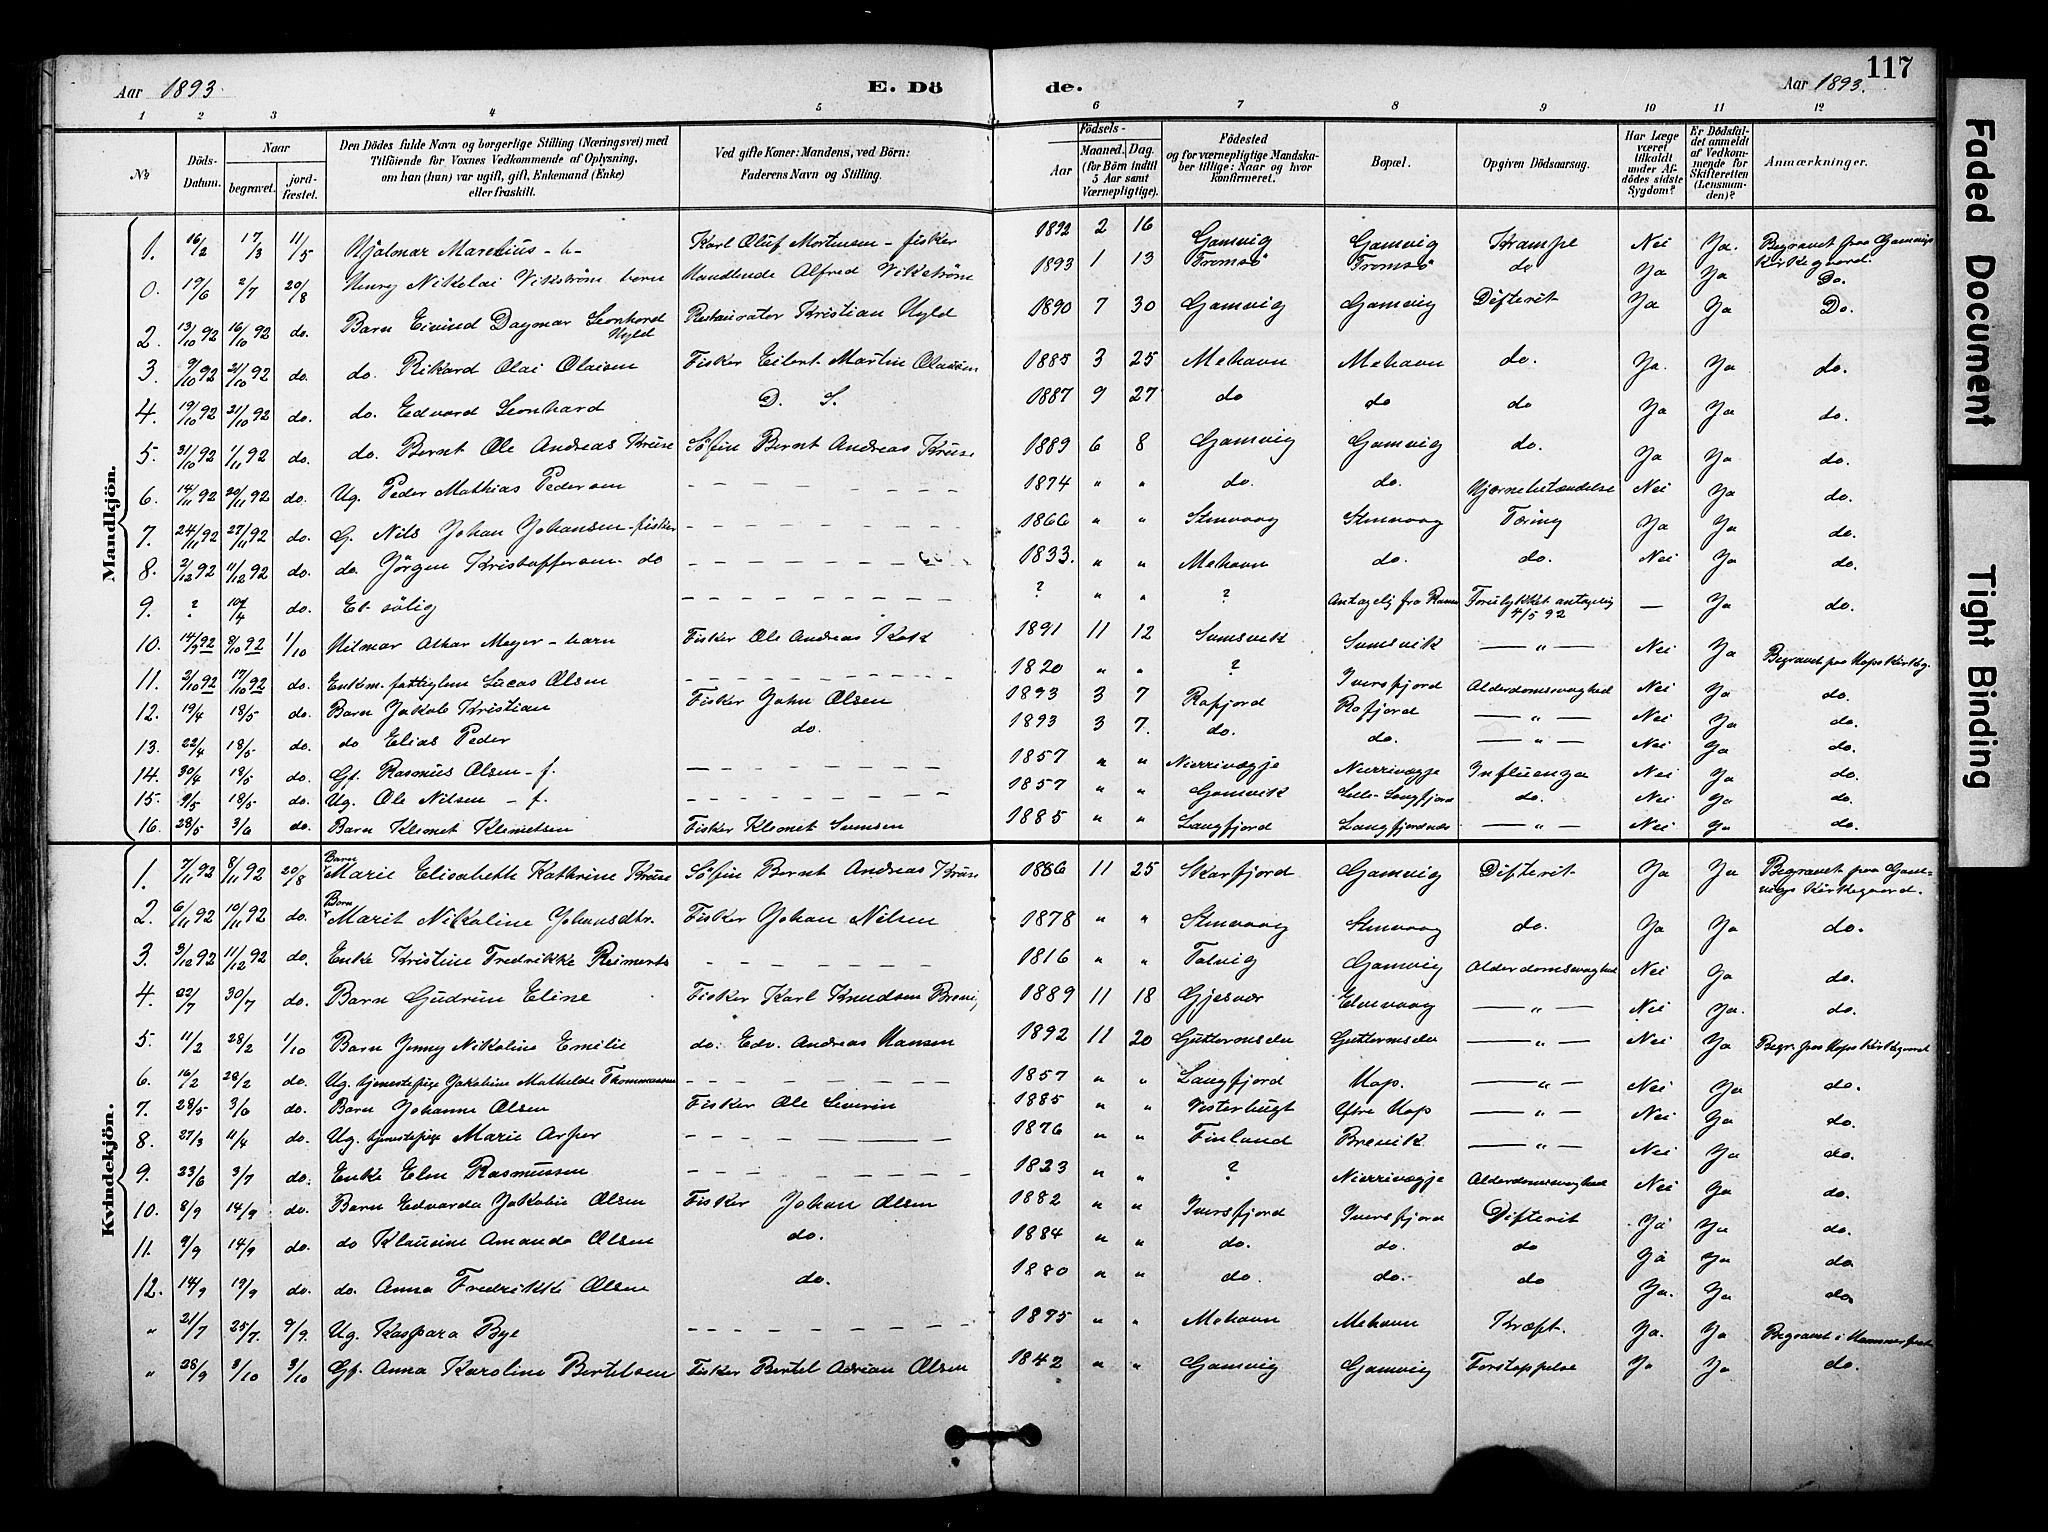 117
Aar 1893. E. Dö de. Aar 1893.
1 2 3 4 5 6 7 8 9 10 11 12
No
Döds-Datum.
Naar
begravet.
jord-fæstet.
Den Dödes fulde Navn og borgerlige Stilling (Næringsvei) med
Tilföiende for Voxnes Vedkommende af Oplysning,
om han (hun) var ugift, gift, Enkemand (Enke)
eller fraskilt.
Ved gifte Koner: Mandens, ved Börn:
Faderens Navn og Stilling.
Födsels-
Aar
Maaned. Dag.
(for Börn indtil
5 Aar samt
Værnepligtige).
Födested
og for værnepligtige Mandska-
ber tillige: Naar og hvor
konfirmeret.
Bopæl.
Opgiven Dödsaarsag.
Har Læge
været
tilkaldt
under Af-
dödes sidste
Sygdom?
Er Dödsfal-
det anmeldt
af Vedkom-
mende for
Skifteretten
(Lensman-
den)?
Anmærkninger.
Mandkjön.
1. 16/2 17/3 11/5 Hjalmar Marelius - b- Karl Oluf Mortensen - fisker 1892 2 16 Gamvig Gamvig Krampe Nei Ja. Begravet paa Gamvigs Kirkegaard.
0. 19/6 2/7 20/8 Henry Nikolai Vikström barn Handlende Alfred Vikström 1893 1 13 Tromsö Tromsö do Ja Ja Do.
2. 13/10 92 16/10 92 do. Barn Eivind Dagmar Leonhard Hyld Restauratör Kristian Hyld 1890 7 30 Gamvig Gamvig Difterit Ja Ja Do.
3. 9/10 92 21/10 92 do. do. Rikard Olai Olaisen Fisker Eilert Martin Olaisen 1885 3 25 Mehavn Mehavn do. Ja. Ja do.
4. 19/10 92 21/10 92 do. do. Edvard Leonhard D. S. 1887 9 27 do do do Ja Ja do.
5. 31/10 92 1/11 92 do. do. Bernt Ole Andreas Kruse Söfin Bernt Andreas Kruse 1889 6 8 Gamvig Gamvig do. Ja Ja do.
6. 14/11 92 20/11 92 do. Ug. Peder Mathias Pedersen - - - 1874 " " do. do. Hjernebetændelse Nei Ja do.
7. 24/11 92 27/11 92 do. G. Nils Johan Johansen - fisker - - - 1866 " " Stenvaag Stenvaag Tæring Ja Ja do.
8. 2/12 92 11/12 92 do. do. Jörgen Kristoffersen do - - - 1833. " " Mehavn do. do. Nei Ja do.
9. ? 10/4 do. Et sölig - - - ? " " ? Antagelig fra Forulykket antagelig 4/5 92 — Ja do.
10. 14/9 92 8/10 92 1/10 Hilmar Meyer - barn Fisker Ole Andreas 1891 11 12 Sumsvik Sumsvik — " — Nei Ja Begravet paa Hops Kirkeg.
11. 2/10 92 17/10 92 do. Enkm. fattiglem Lucas Olsen - - - 1820 " " ? Iversfjord Alderdomsvaghed Nei Ja do.
12. 19/4 18/5 do. Barn Jakob Kristian Fisker John Olsen 1893 3 7 Rofjord Rofjord — " — Nei Ja do.
13. 22/4 18/5 do. do Elias Peder do. 1893 3 7. do. do. — " — Nei Ja do.
14. 30/4 18/5 do. Gf. Rasmus Olsen - f. - - - 1857 " " Nierrivagje Nierrivagje Influenza Nei Ja do.
15. 9/5 18/5 do. Ug. Ole Nilsen - f. - - - 1857 " " Gamvik Lille-Langfjord do. Nei Ja do.
16. 28/5 3/6 do. Barn Klemet Klemetsen Fisker Klemet Samsen 1885 " " Langfjord Langfjordnæs — " — Nei Ja do.
Kvindekjön.
1. 7/11 92 8/11 92 20/8 Barn Marie Elisabeth Kathrine Kruse Söfin Bernt Andreas Kruse 1886 11 25 Skarfjord Gamvig Difterit Ja Ja Begravet paa Gamvigs Kirkegaard.
2. 6/11 92 10/11 92 do. Barn Marit Nikoline Johansdtr. Fisker Johan Nilsen 1878 " " Stenvaag Stenvaag do. Ja Ja do.
3. 3/12 92 11/12 92 do. Enke Kristine Fredrikke Reimers - - - 1816 " " Talvig Gamvig Alderdomsvaghed Nei Ja do.
4. 22/7 30/7 do. Barn Gudrun Eline Fisker Karl Knudsen 1889 11 18 Gjesvær Elvevaag — " — Nei Ja. do.
5. 11/2 28/2 1/10 Barn Jenny Nikoline Emilie do. Edv. Andreas Hansen 1892 11 20 Guttormselv Guttormselv — " — Nei Ja Begr. paa Hops Kirkegaard
6. 16/2 28/2 do. Ug. tjenestepige Jakobine Mathilde Thommassen - - - 1857 " " Langfjord Hop. — " — Nei Ja do.
7. 28/5 3/6 do. Barn Johanne Olsen Fisker Ole Severin 1885 " " Vesterbugt Ifre Hop — " — Nei Ja do.
8. 27/3 11/4 do. Ug. tjenestepige Marie - - - 1876 " " Finland Brevik — " — Nei Ja do.
9. 23/6 3/7 do. Enke Elen Rasmussen - - - 1823 " " ? Nierrivagje Alderdomsvaghed Nei Ja do.
10. 8/9 14/9 do. Barn Edvarda Jakobie Olsen Fisker Johan Olsen 1882 " " Iversfjord Iversfjord Difterit Ja Ja do.
11. 9/9 14/9 do. do Klausine Amanda Olsen do. 1884 " " do. do. do Ja Ja do.
12. 14/9 19/9 do. do. Anna Fredrikke Olsen do. 1880 " " do. do. do Ja. Ja do
" 21/7 25/7 9/9. Ug. Kaspara Bye - - - 1875 " " Mehavn Mehavn Kræft. Ja. Ja Begravet i Hammerfest
" 28/9 3/10 3/10 Gf. Anna Karoline Bertelsen Fisker Bertel Adrian Olsen 1842 " " Gamvig Gamvig Forstoppelse Ja Ja do.
Faded Document
Tight Binding